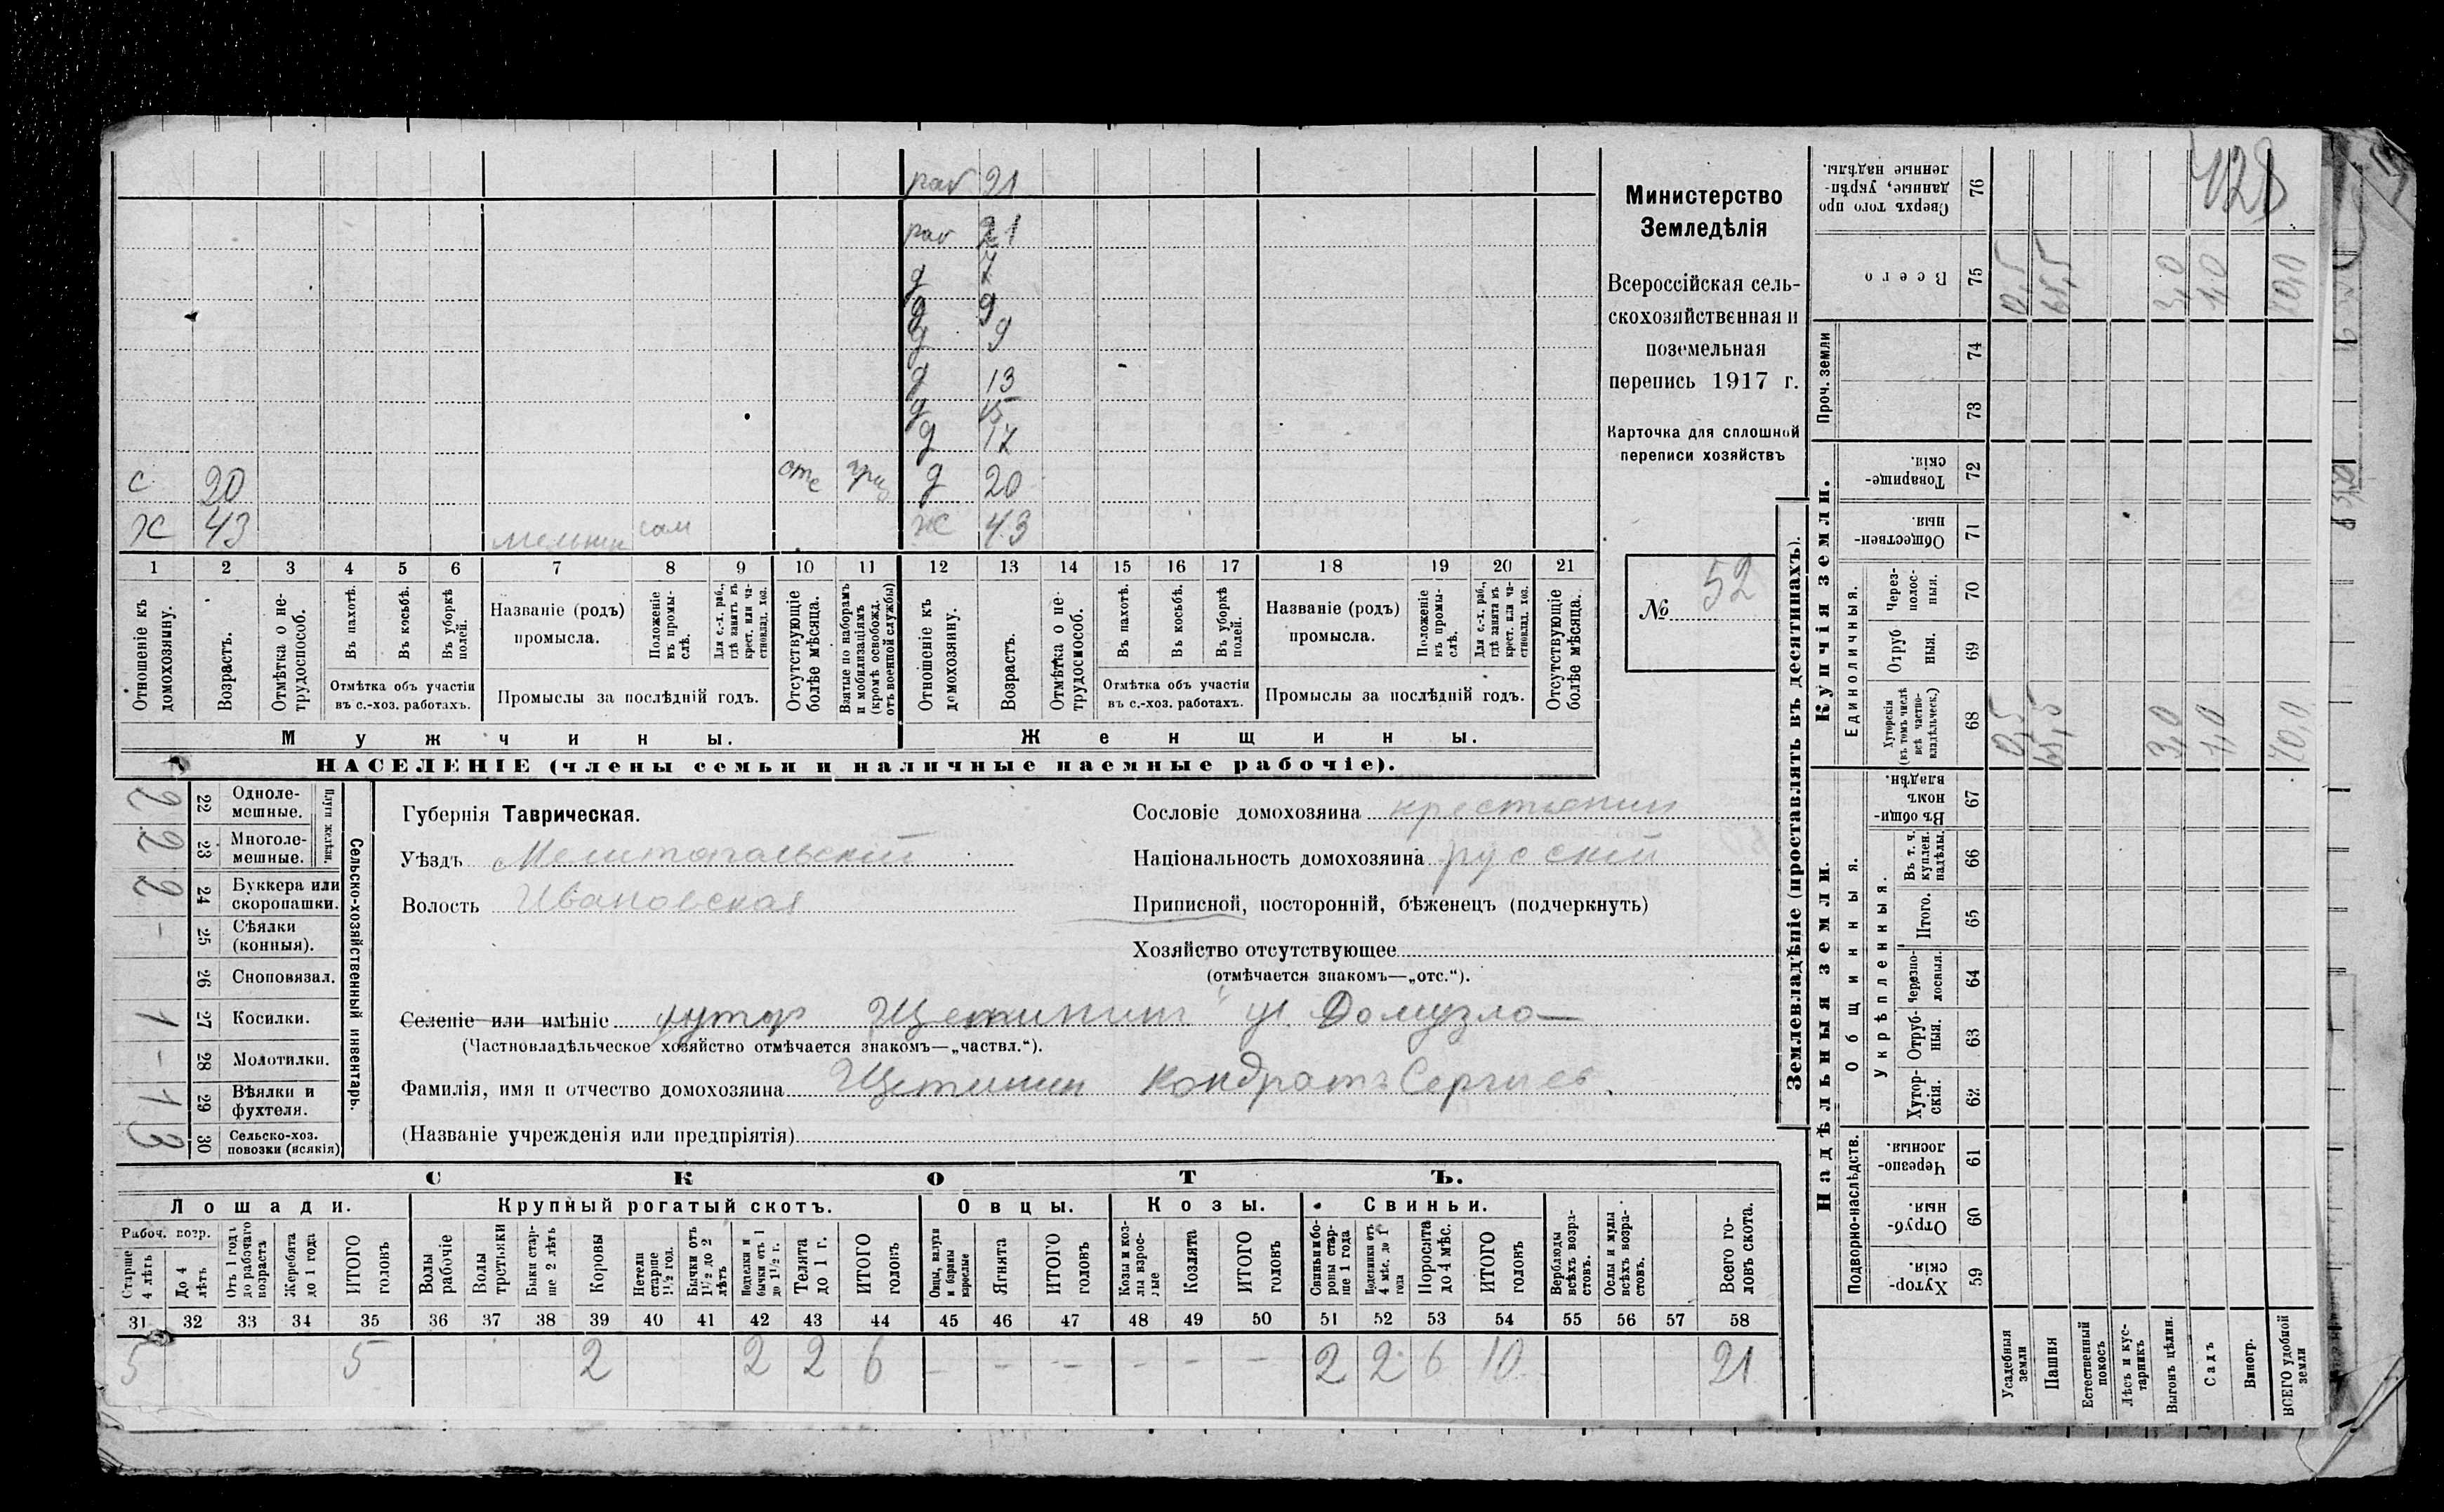 раб 21
раб 21
д 7
д 9
д 9
д 13
д 15
д 17
с 20 отс приз д 20
Х 43 мельник сам Ж 43
1 2 3 4 5 6 7 8 9 10 11 12 13 14 15 16 17 18 19 20 21
Отношеніе къ домохозяину.
Возрастъ.
Отмѣтка о нетрудоспособ.
Въ пахотѣ.
Въ косьбѣ.
Въ уборкѣ полей.
Отмѣтка объ участіи въ с.-хоз. работахъ.
Названіе (родъ) промысла.
Положеніе въ промыслѣ.
Для с.-х. раб., гдѣ занятъ въ крест. или частновлад. хоз.
Промыслы за послѣдній годъ.
Отсутствующіе болѣе мѣсяца.
Взятые по наборамъ и мобилизаціямъ (кромѣ освобожд. отъ военной службы)
Отношеніе къ домохозяину.
Возрастъ.
Отмѣтка о нетрудоспособ.
Въ пахотѣ.
Въ косьбѣ.
Въ уборкѣ полей.
Отмѣтка объ участіи въ с.-хоз. работахъ.
Названіе (родъ) промысла.
Положеніе въ промыслѣ.
Для с.-х. раб., гдѣ занята въ крест. или частновлад. хоз.
Промыслы за послѣдній годъ.
Отсутствующіе болѣе мѣсяца.
Мужчины.
Женщины.
НАСЕЛЕНІЕ (члены семьи и наличные наемные рабочіе).
Министерство
Земледѣлія
Всероссійская сель-
скохозяйственная и
поземельная
перепись 1917 г.
Карточка для сплошной
переписи хозяйствъ
№ 52
2 22 Однолемешные.
2 23 Многолемешные.
Плуги желѣзн.
2 24 Буккера или скоропашки.
- 25 Сѣялки (конныя).
26 Сноповязал.
1 27 Косилки.
- 28 Молотилки.
1 29 Вѣялки и фухтеля.
3 30 Сельско-хоз. повозки (всякія)
Сельско-хозяйственный инвентарь.
Губернія Таврическая.
Уѣздъ Мелитопальскій
Волость Ивановская
Сословіе домохозяина крестьянин
Національность домохозяина русскій
Приписной, посторонній, бѣженецъ (подчеркнуть)
Хозяйство отсутствующее
(отмѣчается знакомъ—„отс.“).
Селеніе или имѣніе хутор Щетинин уч. Домузло
(Частновладѣльческое хозяйство отмѣчается знакомъ—„частвл.“).
Фамилія, имя и отчество домохозяина Щетинин Кондратъ Сергиев.
(Названіе учрежденія или предпріятія)
СКОТЪ.
Лошади.
Крупный рогатый скотъ.
Овцы.
Козы.
Свиньи.
Рабоч. возр.
Старше 4 лѣтъ
До 4 лѣтъ
Отъ 1 года до рабочаго возраста
Жеребята до 1 года
ИТОГО головъ
Волы рабочіе
Волы третьяки
Быки старше 2 лѣтъ
Коровы
Нетели старше 1½ год.
Бычки отъ 1½ до 2 лѣтъ
Подтелки и бычки отъ 1 до 1½ г.
Телята до 1 г.
ИТОГО головъ
Овцы, валухи и бараны взрослые
Ягнята
ИТОГО головъ
Козы и козлы взрослые
Козлята
ИТОГО головъ
Свиньи и боровы старше 1 года
Подсвинки отъ 4 мѣс. до 1 года
Поросята до 4 мѣс.
ИТОГО головъ
Верблюды всѣхъ возрастовъ.
Ослы и мулы всѣхъ возрастовъ.
Всего головъ скота.
31 32 33 34 35 36 37 38 39 40 41 42 43 44 45 46 47 48 49 50 51 52 53 54 55 56 57 58
5 5 2 2 2 6 - - - - - - 2 2 6 10 21
Землевладѣніе (проставлять въ десятинахъ).
Надѣльныя земли.
Купчія земли.
Проч. земли
Подворно-наслѣдств.
Общинныя.
Укрѣпленныя.
Единоличныя.
Сверхъ того проданные, укрѣпленные надѣлы. 76
428
Всего 75 0,5 65,5 3,0 1,0 70,0
74
73
Товарищескія. 72
Общественныя. 71
Черезполосныя. 70
Отрубныя. 69
Хуторскія (въ томъ числѣ всѣ частновладѣльческ.) 68 0,5 65,5 3,0 1,0 70,0
Въ общинномъ владѣн. 67
Въ т. ч. куплен. надѣлы. 66
Итого. 65
Черезполосныя. 64
Отрубныя. 63
Хуторскія. 62
Черезполосныя 61
Отрубныя. 60
Хуторскія. 59
Усадебныя земли
Пашня
Естественный покосъ
Лѣсъ и кустарникъ
Выгонъ цѣлин.
Садъ
Виногр.
ВСЕГО удобной земли